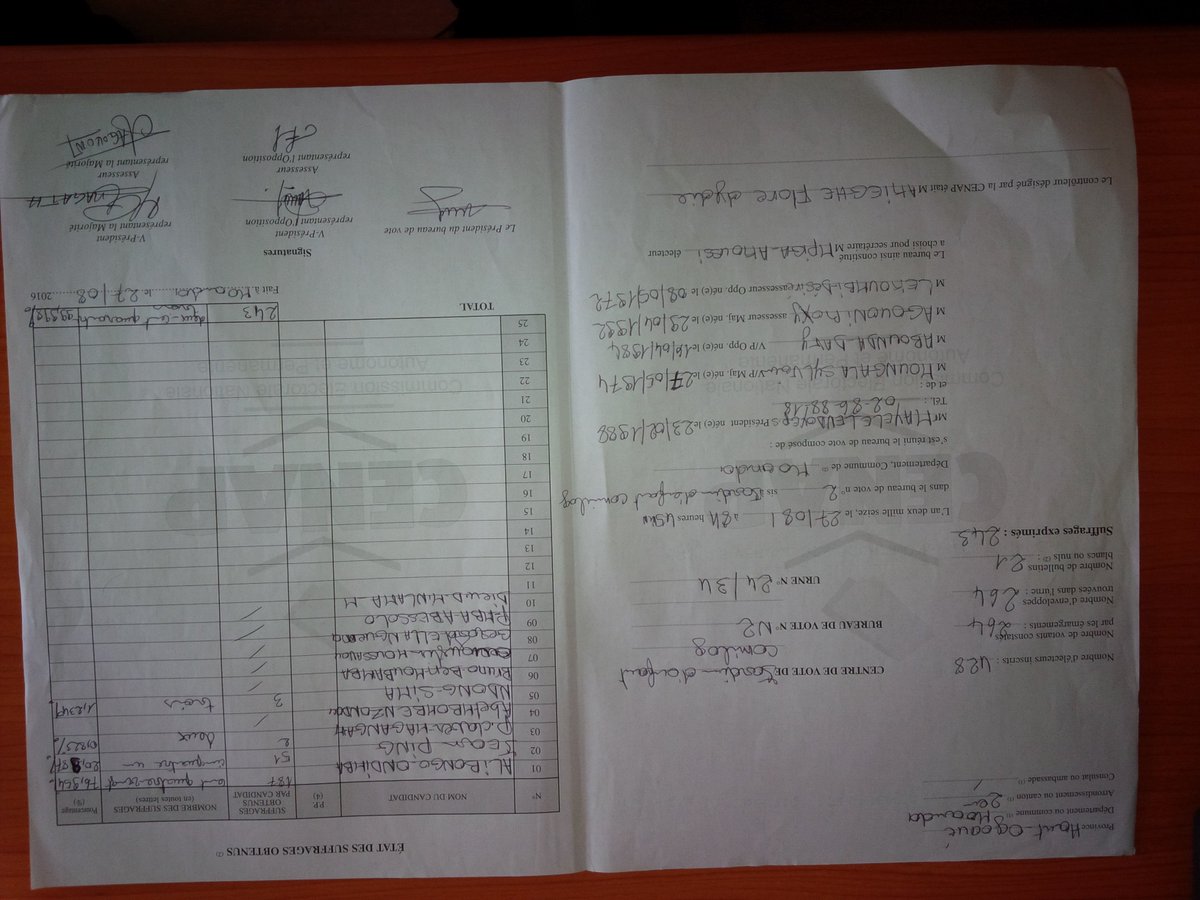 Province Haut-Ogooué
Département ou commune (1) Moanda
Arrondissement ou canton (1) 2em
Consulat ou ambassade (1) /
Nombre d'électeurs inscrits : 428
CENTRE DE VOTE DE Jardin d'enfant
comilog
Nombre de votants constatés
par les émargements : 264
BUREAU DE VOTE N° N2
Nombre d'enveloppes
trouvées dans l'urne : 264
URNE N° 24/34
Nombre de bulletins
blancs ou nuls (2) : 21
Suffrages exprimés : 243
L'an deux mille seize, le 27/08/ à 8H heures 45mn
dans le bureau de vote n° 2 sis Jardin d'enfant comilog
Département, Commune de (2) Moanda
s'est réuni le bureau de vote composé de :
Mr MAYELE LEVI président né(e) le 23/02/1988
Tél. : 02-86-88-18
et de :
M MOUNGALA SYLVAIN V/P Maj. né(e) le 27/05/1974
M ABOUNDA DANY V/P Opp. né(e) le 16/04/1984
M AGOUONI ROXY assesseur Maj. né(e) le 29/04/1992
M LEKOUMBI-Désiré assesseur Opp. né(e) le 08/09/1972
Le bureau ainsi constitué
a choisi pour secrétaire M MPIGA-AMOUESI électeur
Le contrôleur désigné par la CENAP était M ANIEGHE Flore dydie
ÉTAT DES SUFFRAGES OBTENUS (2)
N° NOM DU CANDIDAT P.P. (4) SUFFRAGES OBTENUS PAR CANDIDAT NOMBRE DES SUFFRAGES (en toutes lettres) Pourcentage (%)
01 ALI BONGO-ONDIMBA 187 cent quatre-vingt 76,954%
02 Jean PING 51 cinquante un 20,987%
03 P. claver-MAGANGA M 2 deux 0,823%
04 Abel MBOMBE NZONDOU /
05 NDONG-SIMA 3 trois 1,234%
06 Bruno Ben MOUBAMBA /
07 MOUSSAVOU /
08 ELLA NGUEMA /
09 REMBA ABESSOLO /
10 Dieud-MINLAMA-M
11
12
13
14
15
16
17
18
19
20
21
22
23
24
25
TOTAL 243 deux-cent quarante trois 99,999%
Fait à Moanda, le 27/08 2016
Signatures
Le Président du bureau de vote
V-Président
représentant l'Opposition
V-Président
représentant la Majorité
Assesseur
représentant l'Opposition
Assesseur
représentant la Majorité
AGOUONI
Commission Electorale Nationale
Autonome et Permanente
CENAP